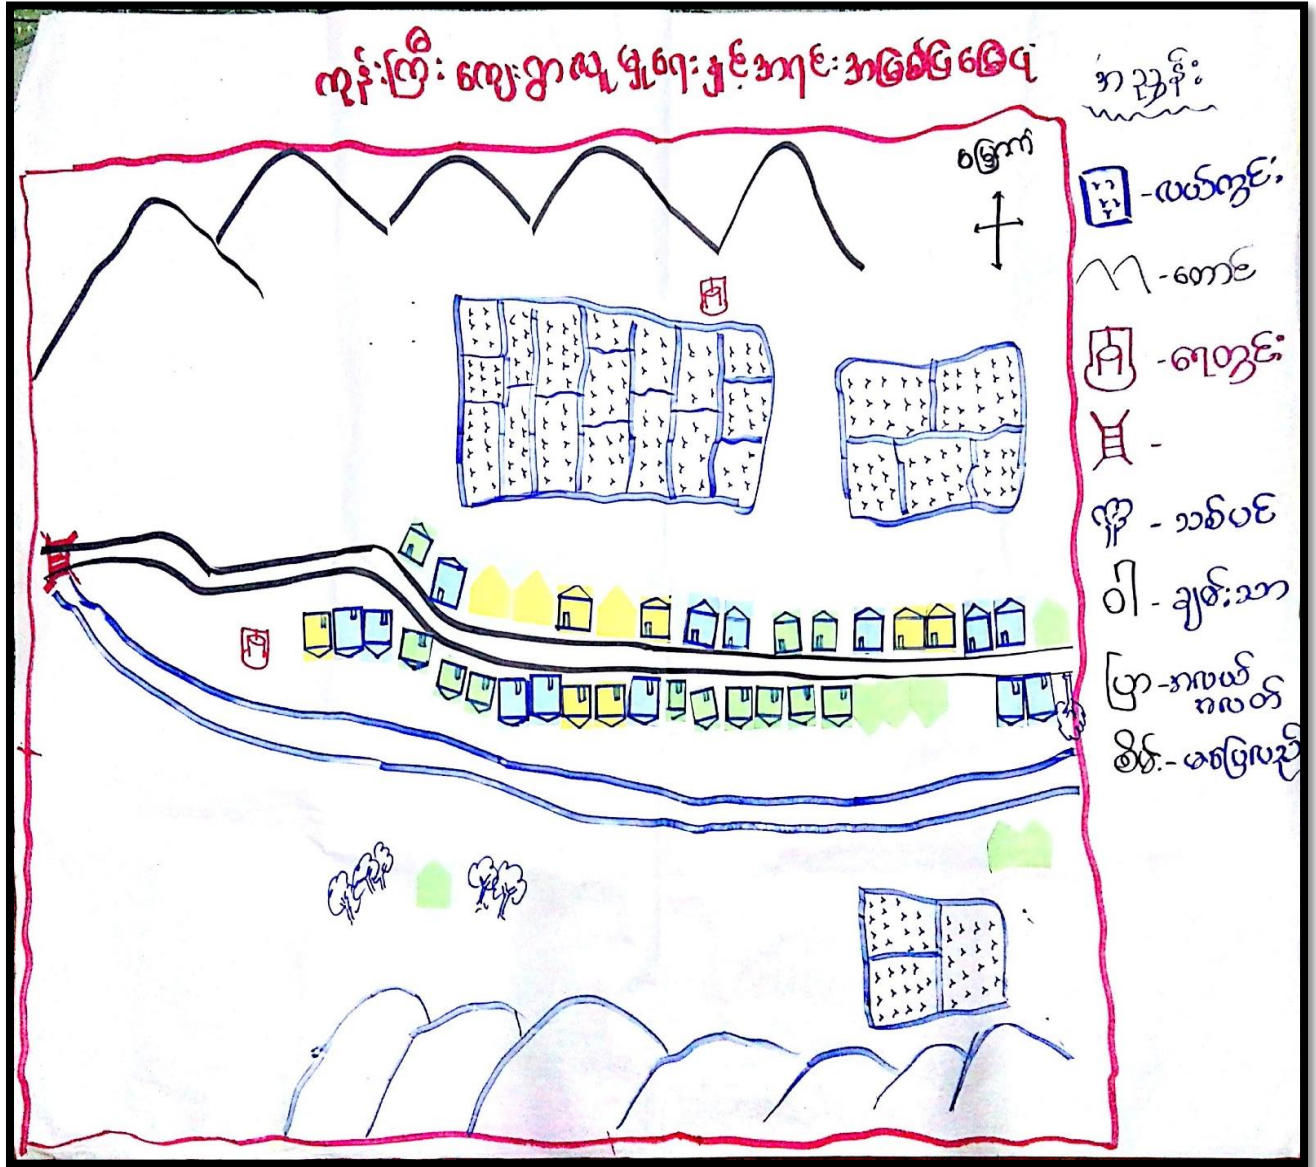 ကုန်းကြီး ကျေးရွာ လူမှုရေးနှင့်အရင်းအမြစ်ပြမြေပုံ
အညွှန်း
မြောက်
- လယ်ကွင်း
- တောင်
- ရေတွင်း
-
- သစ်ပင်
ဝါ - ချမ်းသာ
ပြာ - အလယ်
အလတ်
စိမ်း - မပြေလည်